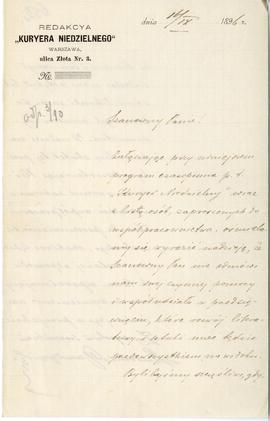 REDAKCYA
„KURYERA NIEDZIELNEGO“
WARSZAWA,
ulica Złota Nr. 3.
№
dnia 14/IX 1896 r.
odp. 3/10
Szanowny Panie!
Załączając przy niniejszem
program czasopisma p. t.
"Kuryer Niedzielny" wraz
z listą osób, zaproszonych do
współpracownictwa, ośmielamy się wyrazić nadzieję, że
Szanowny Pan nie odmówi
nam swej czynnej pomocy
i współudziału w przedsięwzięciu, które rozwój literatury
i sztuki mieć będzie
przedewszystkiem na widoku.
Bylibyśmy szczęśliwi, gdy